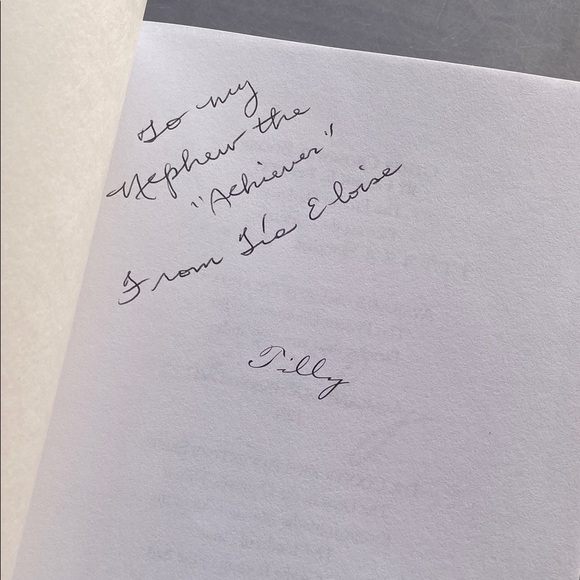 To my
Nephew the
"Achiever"
From Tía Eloise
Tilly